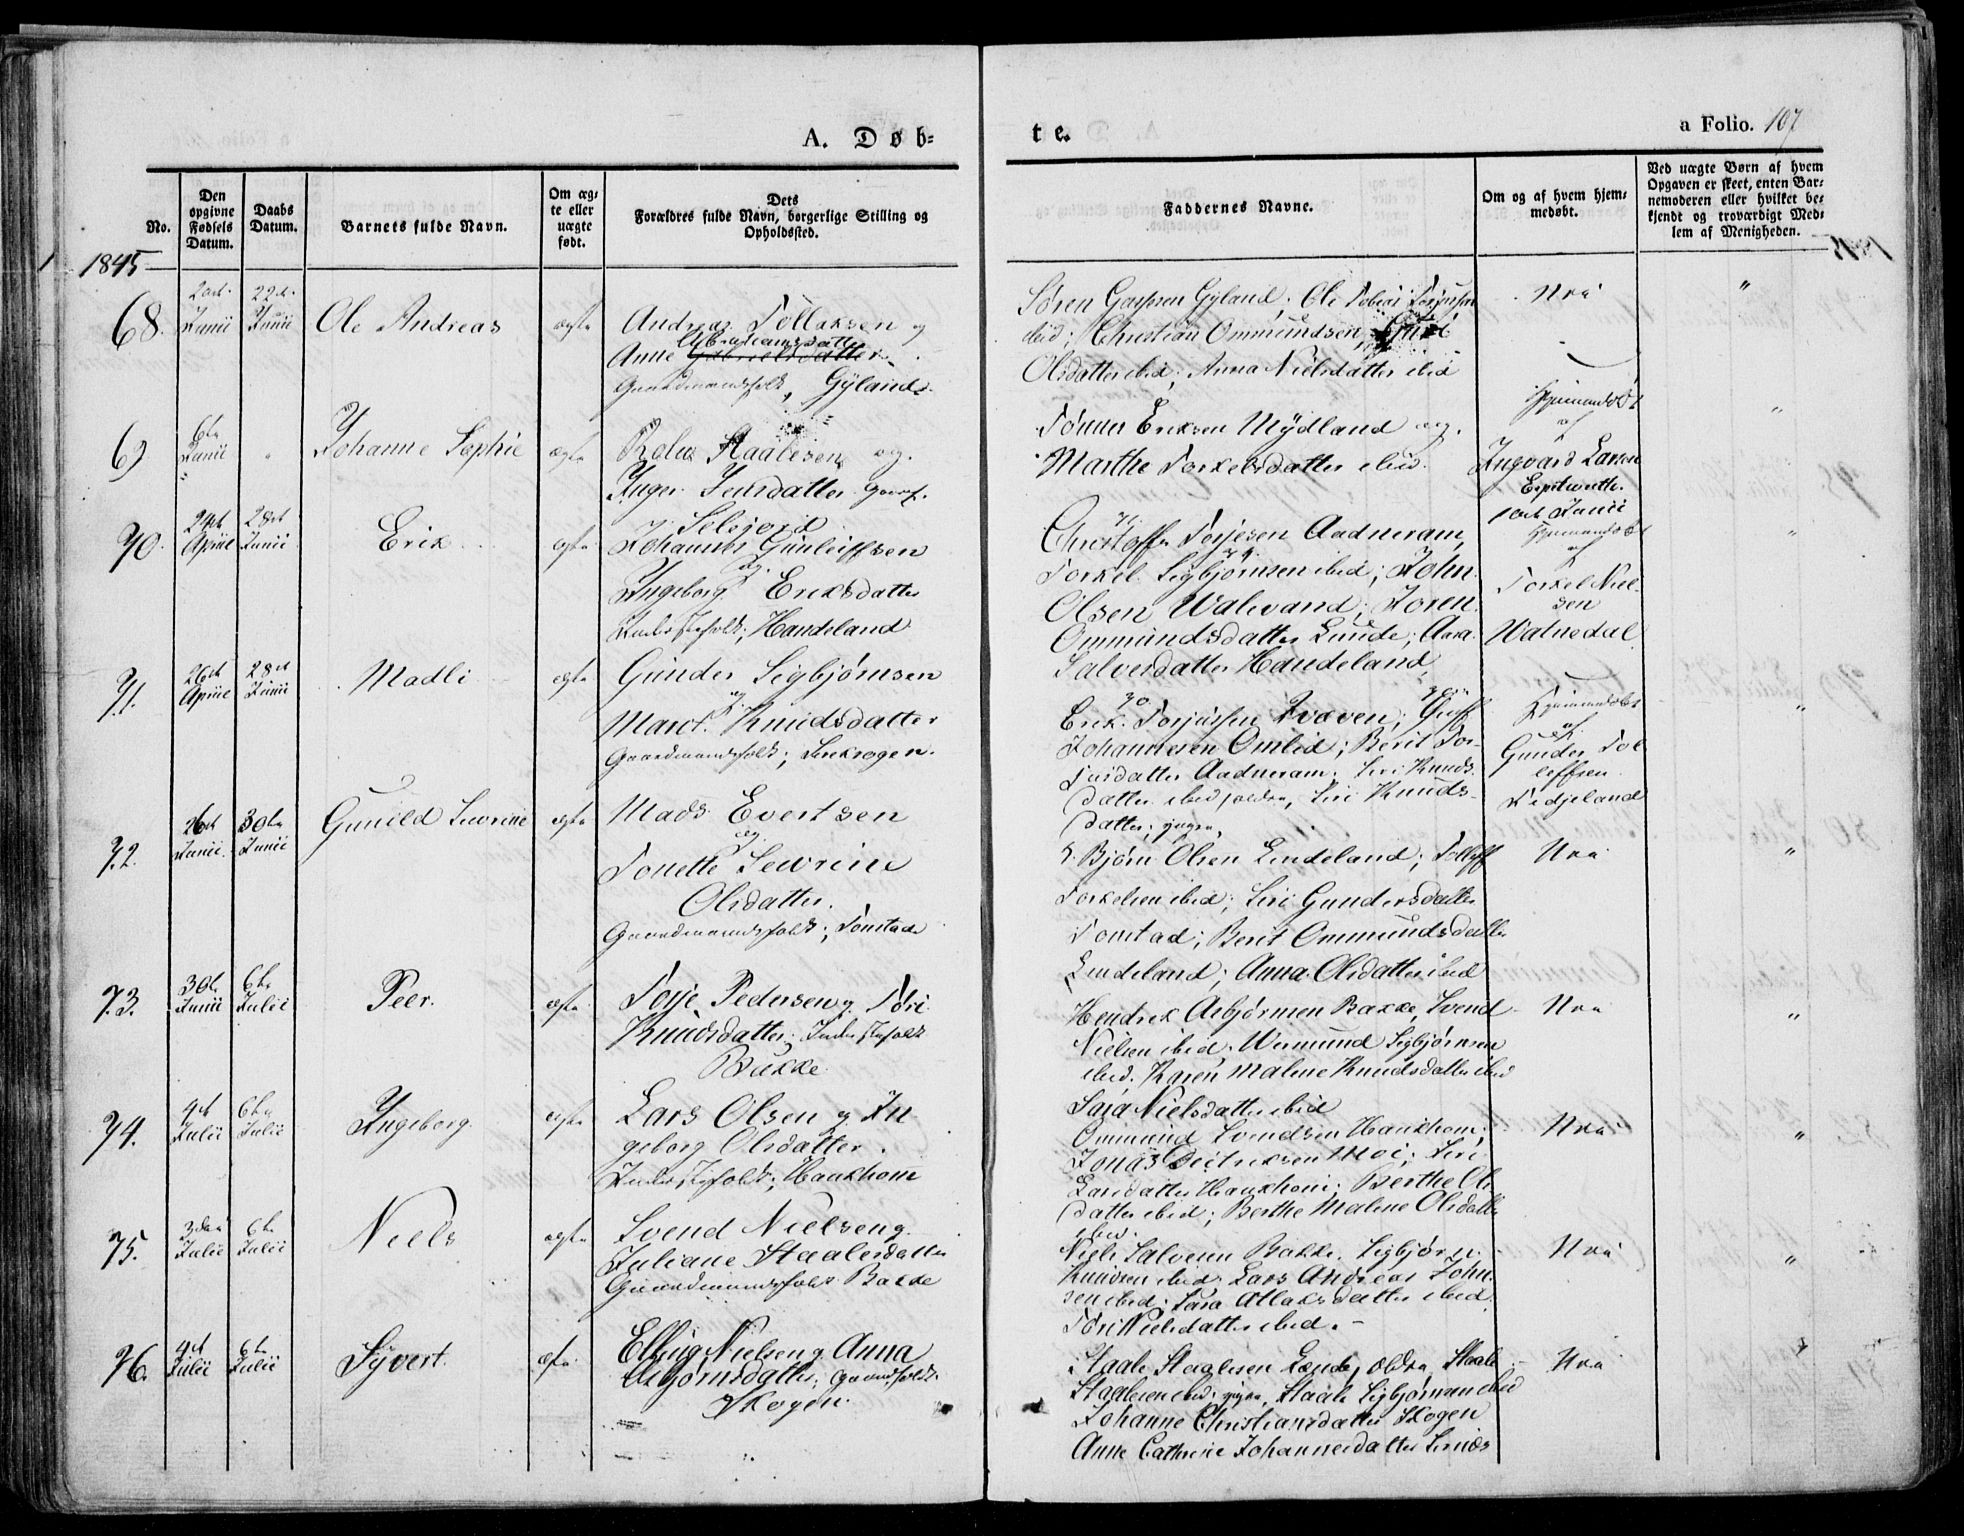 A. Døb-
te.
a Folio. 107
No.
Den opgivne Fødsels Datum.
Daabs Datum.
Barnets fulde Navn.
Om ægte eller uægte født.
Dets Forældres fulde Navn, borgerlige Stilling og Opholdssted.
Faddernes Navne.
Om og af hvem hjemmedøbt.
Ved uægte Børn af hvem Opgaven er skeet, enten Barnemoderen eller hvilket bekjendt og troværdigt Medlem af Menigheden.
1845
68.
Junii
22de
Junii
Ole Andreas
ægte
Andreas Tollaksen og
Abrahamsdatter
Anne Gabrielsdatter
Gaardmandsfolk, Gyland.
Søren Gyland; Ole Tobias
ibid; Christian Ommundsen,
Olsdatter ibid; Anna Nielsdatter ibid
Nei
"
69
6te
Junii
"
Johanne Sophie
ægte
Staalesen og
Inger Jensdatter
Tønnes Eriksen Mydland og
Marthe Torkelsdatter ibid.
Hjemmedøbt
af
Ingvard Larsen
Junii
"
70.
24de
April
28de
Junii
Erik
ægte
Johannes Gunleiffsen
og
Ingeborg Eriksdatter
Inderstefolk; Handeland
Christoffer Torjesen Aadneram,
Torkel Sigbjørnsen ibid; John
Olsen Walevand; Joren
Ommundsdatter Lunde;
Salvesdatter Handeland
Hjemmedøbt
af
Torkel Niel-
sen
"
71.
26de
April
28de
Junii
Madli
ægte
Gunder Sigbjørnsen
og
Maret Knudsdatter
Gaardmandsfolk;
Erik Torjussen Kvæven;
Johannesen Omlid; Berit Tor-
datter Aadneram; Siri Knuds-
datter ibid ældre, Siri Knuds-
datter, yngre,
Hjemmedøbt
af
Gunder Tol-
leffsen
Tedjeland
"
72.
26de
Junii
30te
Junii
Gunild Sevrine
ægte
Mads Evertsen
og
Tonette Sevrine
Olsdatter.
Gaardmandsfolk; Tonstad
Bjørn Olsen Lindeland; Tolleff
Torkelsen ibid; Siri Gundersdatter
Tonstad; Berit Ommundsdatter
Lindeland; Anna Olsdatter ibid
Nei
"
73.
30te
Junii
6te
Julii
Peer.
ægte
Torje Pedersen og Tori
Knudsdatter; Inderstefolk
Bakke
Hendrik Asbjørnsen Bakke, Svend
Nielsen ibid. Wermund Sigbjørnsen
ibid. Karen Malene Knudsdatter ibid
Sara Nielsdatter ibid
Nei
"
74.
4de
Julii
6te
Julii
Ingeborg
ægte
Lars Olsen og In-
geborg Olsdatter.
Inderstefolk; Haukhom
Ommund Svendsen Haukhom;
Jonas Dedriksen Moi; Siri
Larsdatter Haukhom; Berthe Ols-
datter ibid; Berthe Malene Olsdatter
ibid.
Nei
"
75.
3die
Julii
6te
Julii
Niels
ægte
Svend Nielsen og
Juliane Staalesdatter
Gaardmandsfolk Bakke
Niels Salvesen Bakke. Sigbjørn
Knudsen ibid; Lars Andreas John-
sen ibid; Sara Atlaksdatter ibid
Tori Nielsdatter ibid.
Nei
"
76.
4de
Julii
6te
Julii
Syvert.
ægte
Elling Nielsen og Anna
Asbjørnsdatter; Gaardfolk
Skogen.
Staale Staalesen ældre, Staale
Staalesen ibid. yngre, Staale Sigbjørnsen ibid
Johanne Christiansdatter Skogen
Anne Cathrine Johannesdatter
Nei